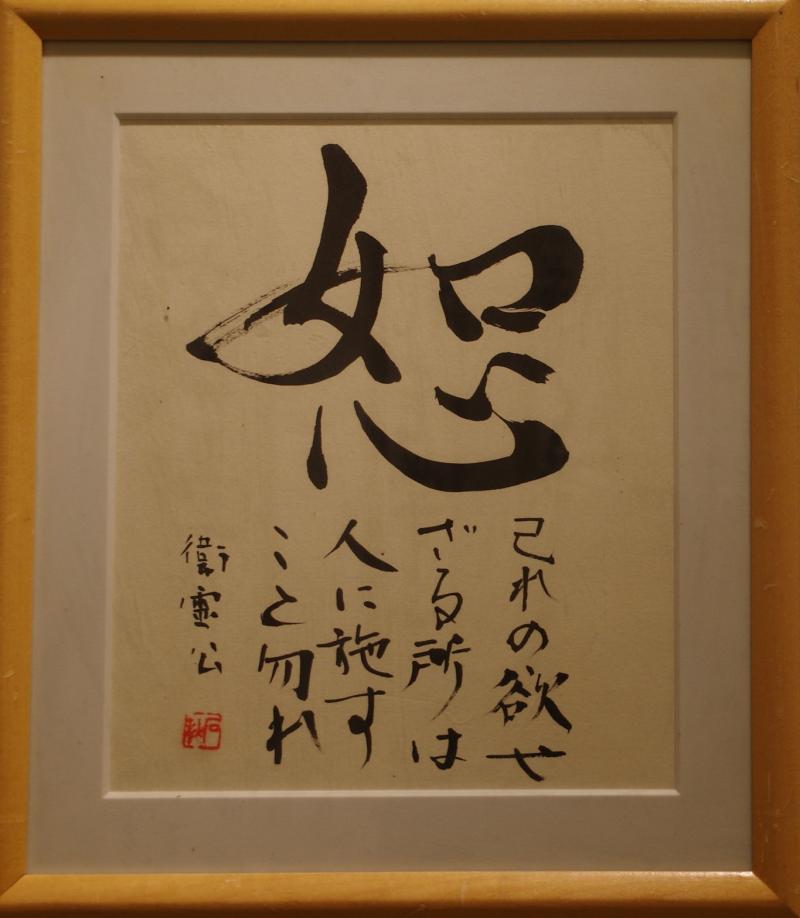 恕
己れの欲せ
ざる所は
人に施す
こと勿れ
衛霊公